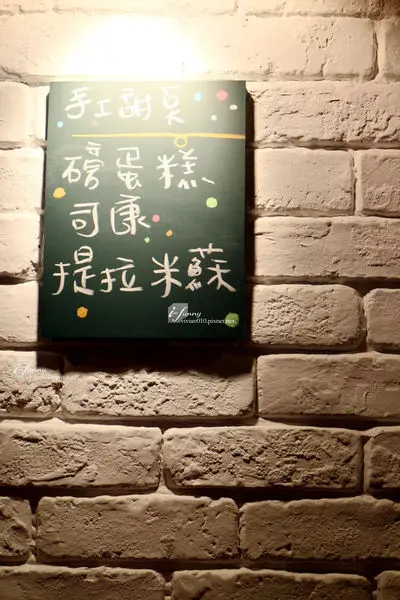 手工甜點
磅蛋糕
司康
提拉米蘇
i-funny
vivian010.pixnet.net
i-funny